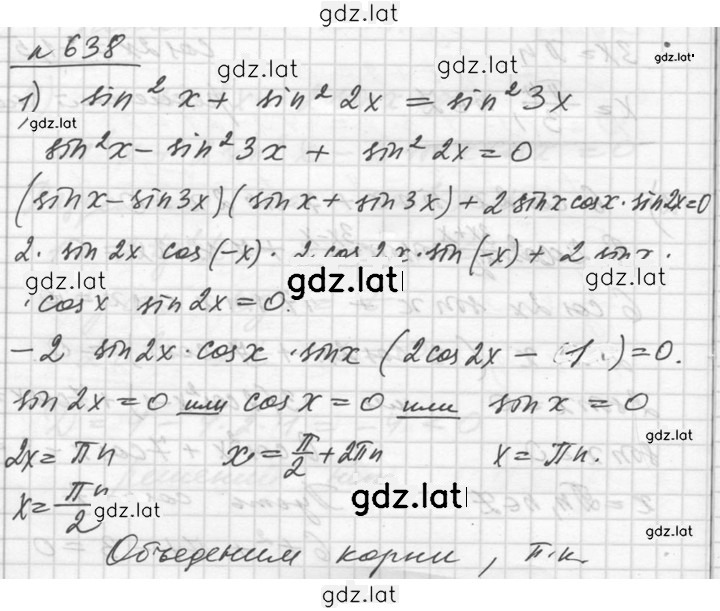 gdz.lat
№ 638
gdz.lat gdz.lat gdz.lat
1) sin² x + sin² 2x = sin² 3x
gdz.lat
sin²x - sin² 3x + sin² 2x = 0
(sinx - sin3x)(sinx + sin3x) + 2 sinx cosx · sin2x = 0
2 · sin 2x cos(-x) · 2 cos 2x · sin(-x) + 2 sinx ·
gdz.lat gdz.lat gdz.lat
· cosx sin2x = 0.
-2 sin2x · cosx · sinx (2cos2x - 1) = 0.
sin 2x = 0 или cos x = 0 или sin x = 0
gdz.lat
2x = πn x = π/2 + 2πn x = πn.
x = πn/2 gdz.lat gdz.lat
gdz.lat
Объеденим корни, т.к.
gdz.lat